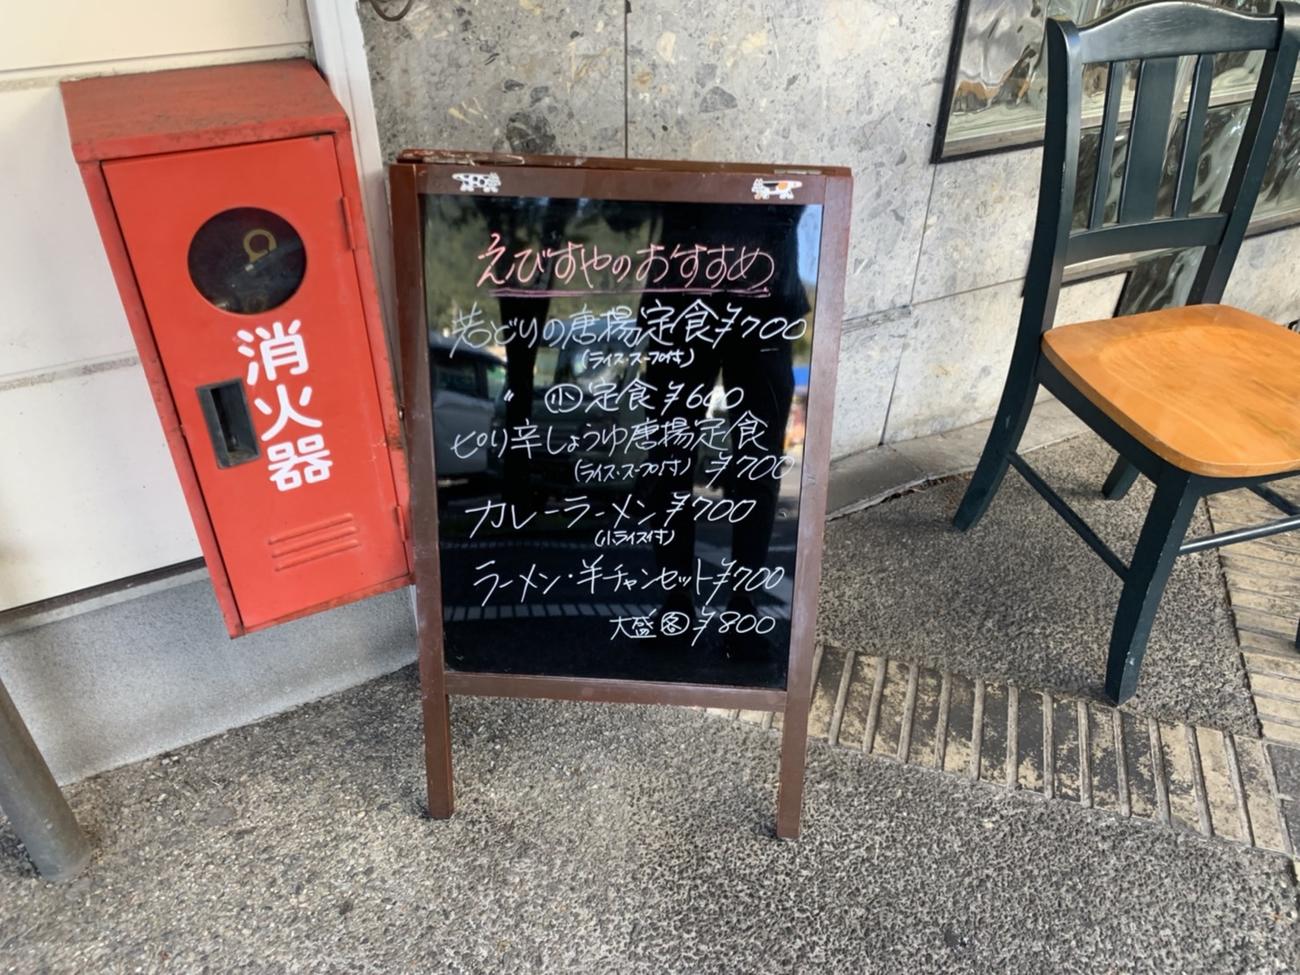 消火器
えびすやのおすすめ
若どりの唐揚定食¥700
(ライス・スープ付)
〃 ㊙定食¥600
ピリ辛しょうゆ唐揚定食
(ライス・スープ付) ¥700
カレーラーメン¥700
(小ライス付)
ラーメン・半チャンセット¥700
大盛 各 ¥800